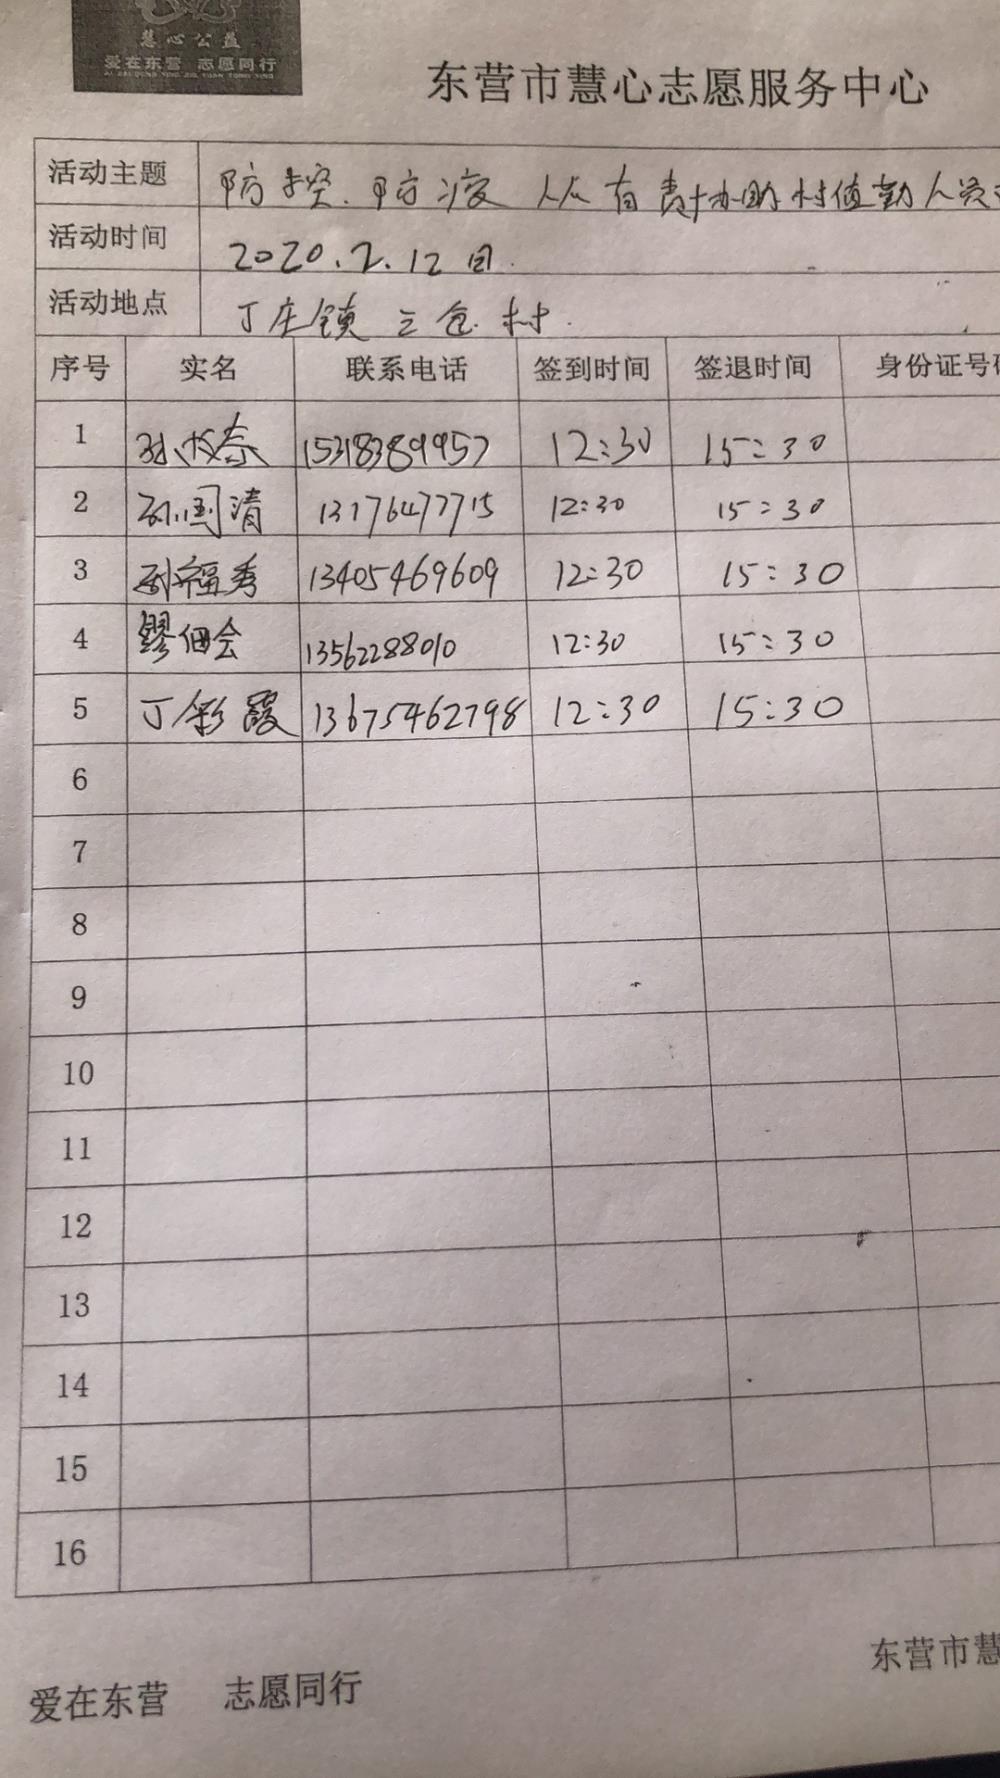 慧心公益
爱在东营 志愿同行
AI ZAI DONG YING ZHI YUAN TONG XING
东营市慧心志愿服务中心
活动主题 防控.防疫 人人有责协助村值勤人员
活动时间 2020.2.12日.
活动地点 丁庄镇三仓村.
序号 实名 联系电话 签到时间 签退时间 身份证号
1 孙 15318389957 12:30 15:30
2 孙国清 13176477715 12:30 15:30
3 福秀 13405469609 12:30 15:30
4 缪佃会 13562288010 12:30 15:30
5 丁彩霞 13675462798 12:30 15:30
6
7
8
9
10
11
12
13
14
15
16
东营市慧
爱在东营 志愿同行